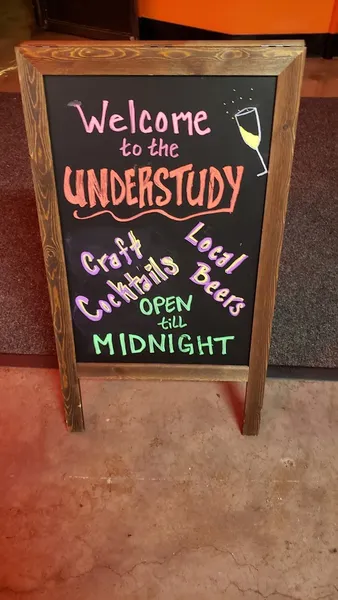 Welcome
to the
UNDERSTUDY
Craft
Cocktails
Local
Beers
OPEN
till
MIDNIGHT